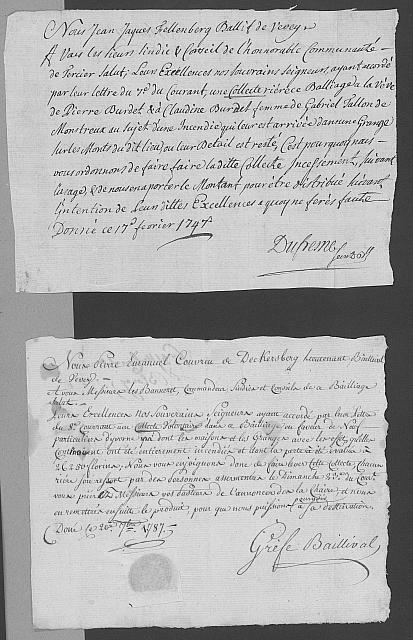 Nous Jean Jaques Fellenberg Ballif de Vevey
A Vous les sieurs sindic & Conseil de l'honnorable Communauté
de Corcier Salut; Leur Excellences nos souvrains Seigneurs, ayant accordé
par leur lettre du 7e du Courant, une Collecte rière ce Balliage à la Veve
de Pierre Burdet & à Claudine Burdet femme de Gabriel Tallon de
Montreux au sujet d'une Incendie qui leur est arrivée dans une Grange
sur les Monts du dit lieu, ou leur Betail est resté, C'est pourquoy nous
vous ordonnons de faire faire la ditte Collecte Incessemment, suivant
l'usage, & de nous en porter le Montant pour être distribué suivant
l'intention de Leurs dittes Excellences a quoy ne ferés faute
Donné ce 17e fevrier 1747
Dufresne
Nous Pierre Emanuel Couvreu de Deckersberg Lieutenant Baillival
de Vevey
A vous Messieurs les Banneret, Commandeur Sindics et Conseils de ce Bailliage
Salut
Leurs Excellences nos Souverains Seigneurs ayant accordé par leur lettre
du Courrant une Collecte Volontaire dans ce Bailliage en faveur de Neuf
particuliers d'yvorne qui dont les maisons et les Granges avec les effets qu'elles
Contenoient ont été entièrement incendiés et dont la perte est évaluée à
26250 florins, Nous vous enjoignons donc de faire lever Cette Collecte, Chacun
rière son ressort par des personnes assermentées le Dimanche du Cour.
vous priés Messieurs vos pasteurs de l'annoncer des la Chaire, et nous
en remettrés ensuite le produit pour que nous puissions pourvoir à sa destination.
Donné le 26e 7bre 1787
Grefe Baillival